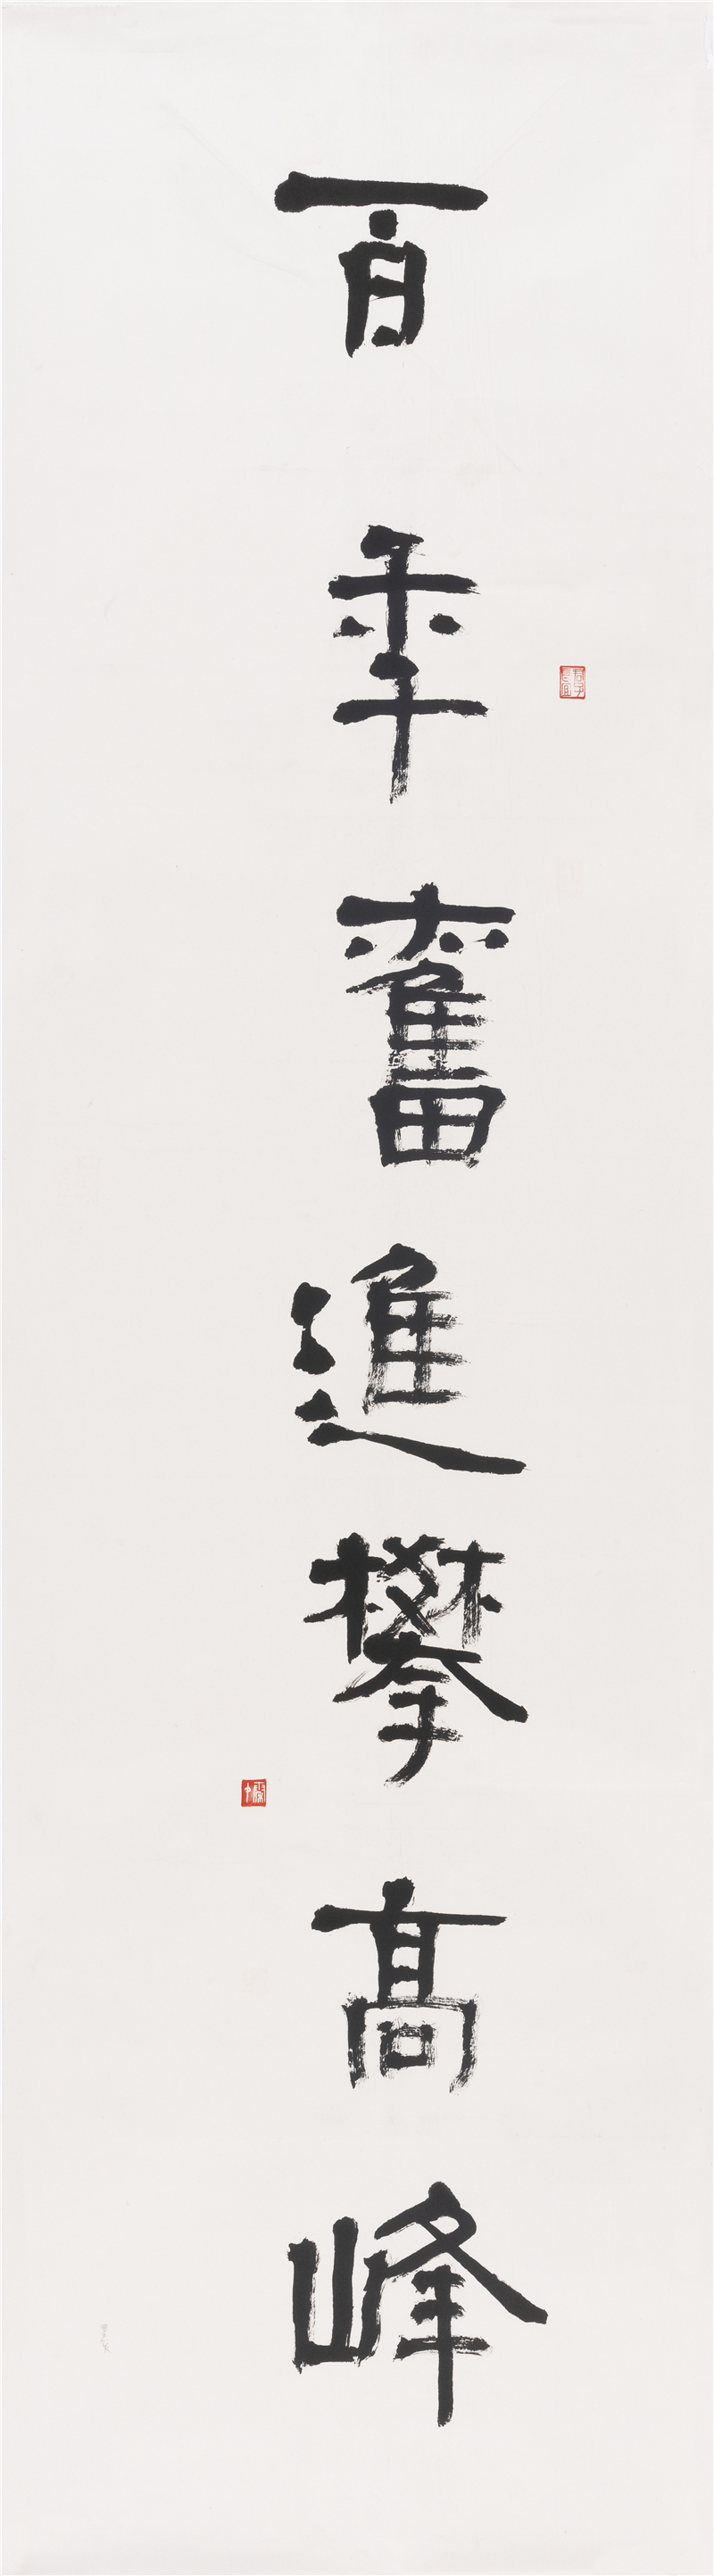 百年奮進攀高峰